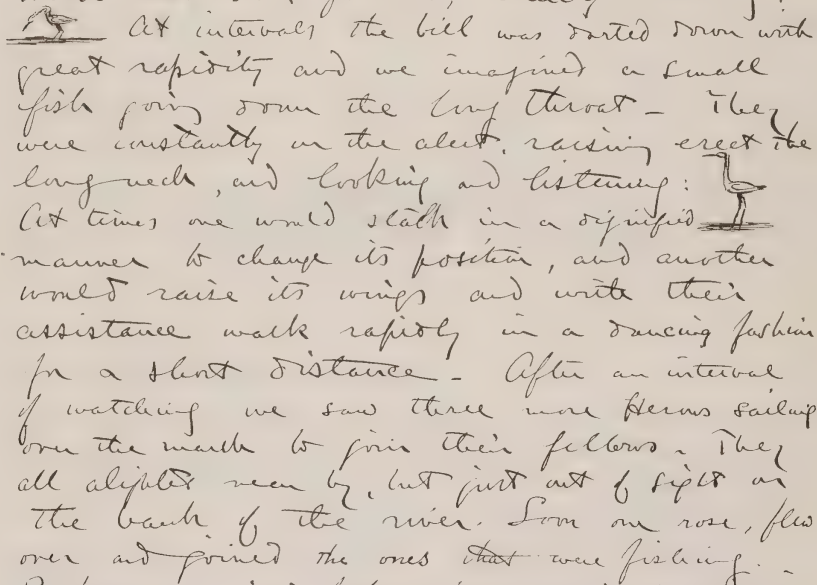 At intervals the bill was darted down with
great rapidity and we imagined a small
fish going down the long throat – They
were constantly on the alert, raising erect the
long neck, and looking and listening:
At times one would stalk in a dignified
manner to change its position, and another
would raise its wings and with their
assistance walk rapidly in a dancing fashion
for a short distance – After an interval
of watching we saw three more Herons sailing
over the marsh to join their fellows – They
all alighted near by, but just out of sight on
the bank of the river. Soon one rose, flew
over and joined the ones that were fishing.